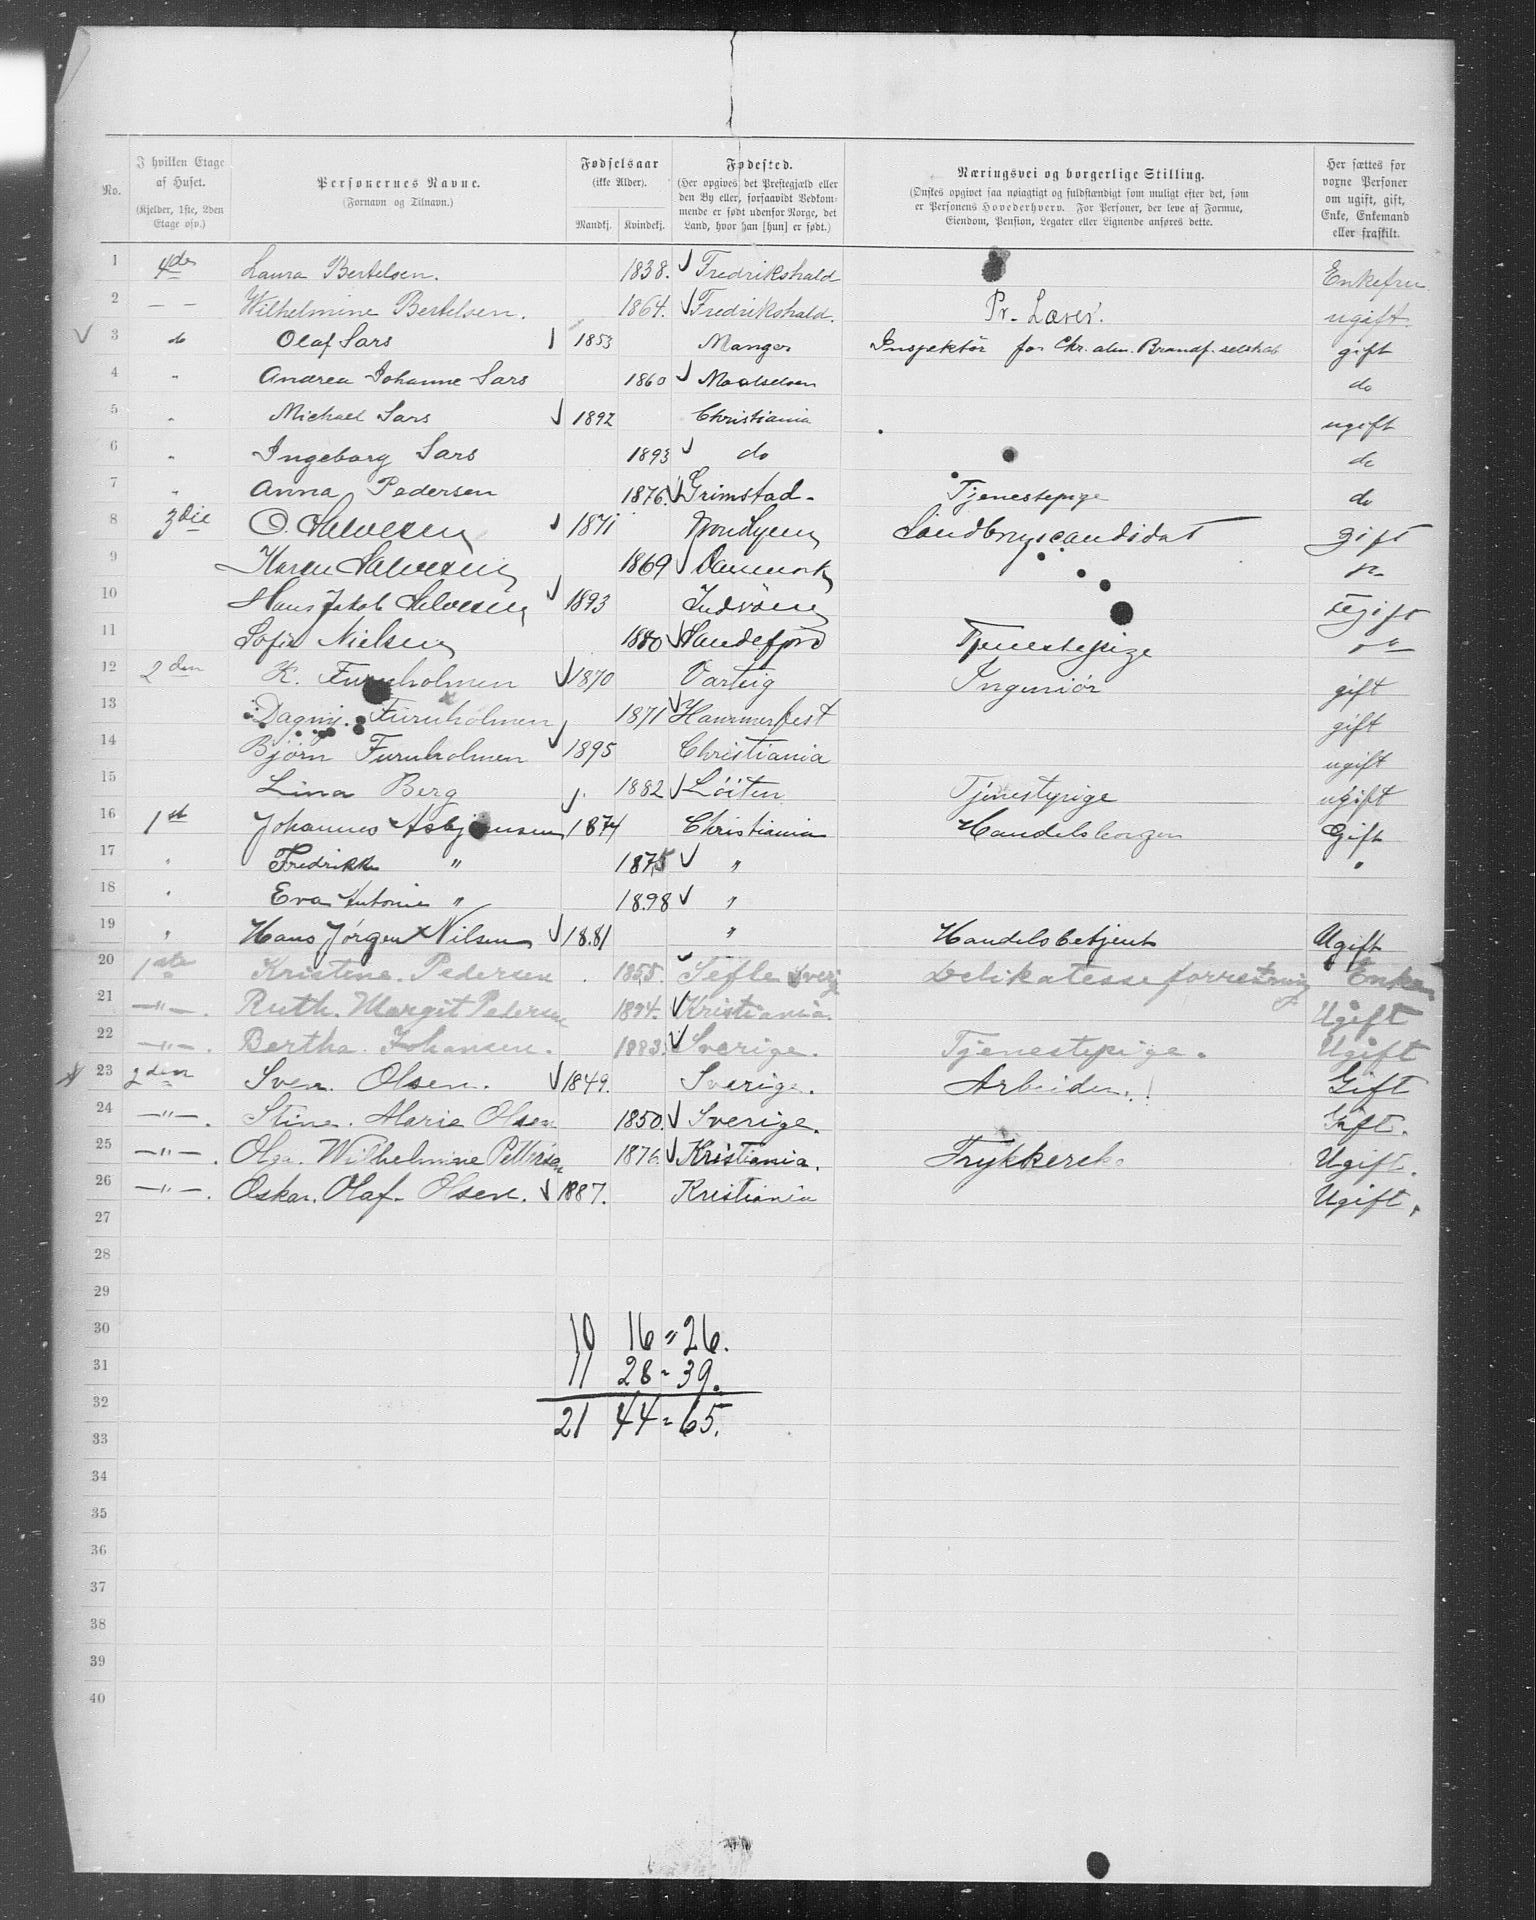 No.
I hvilken Etage af Huset. (Kjelder, 1ste, 2den Etage osv.)
Personernes Navne. (Fornavn og Tilnavn.)
Fødselsaar (ikke Alder). Mandkj. Kvindekj.
Fødested. (Her opgives det Prestegjæld eller den By eller, forsaavidt Vedkommende er født udenfor Norge, det Land, hvor han [hun] er født.)
Næringsvei og borgerlige Stilling. (Ønskes opgivet saa nøiagtigt og fuldstændigt som muligt efter det, som er Personens Hovederhverv. For Personer, der leve af Formue, Eiendom, Pension, Legater eller Lignende anføres dette.
Her sættes for voxne Personer om ugift, gift, Enke, Enkemand eller fraskilt.
1 4de Laura Bertelsen. 1838. Fredrikshald Enkefru
2 — — Wilhelmine Bertelsen. 1864. Fredrikshald. Pr. Lærer. ugift.
3 do Olaf Sars 1853 Manger Inspektör for Chr. alm. Brandf. selskab gift
4 " Andrea Johanne Sars 1860 Maalselven do
5 " Michael Sars 1892 Christiania ugift
6 " Ingeborg Sars 1893 do do
7 " Anna Pedersen 1876. Grimstad. Tjenestepige do
8 3die O Salvesen 1871 Landbrugscandidat gift
9 Karen Salvesen 1869 Danmark
10 Hans Jakob Salvesen 1893 Inderöen Ugift
11 Sofie Nielsen 1880 Sandefjord Tjenestepige
12 2den K. Furuholmen 1870 Varteig Ingeniör gift
13 Dagny. Furuholmen 1871 Hammerfest gift
14 Bjørn Furuholmen 1895 Christiania ugift
15 Lina Berg 1882 Löiten Tjenestepige ugift
16 1st Johannes Asbjörnsen 1874 Christiania Handelsborger Gift
17 " Fredrikke " 1875 " "
18 " Eva Antonie " 1898 "
19 " Hans Jørgen Nilsen 1881 " Handelsbetjent Ugift
20 1ste Kristine. Pedersen 1855. Gefle Sverig Delikatesseforretning Enke
21 —"—. Ruth. Margit Pedersen 1894. Kristiania. Ugift
22 —"—. Bertha Johansen. 1883. Sverige. Tjenestepige. Ugift
23 2den Sven. Olsen. 1849. Sverige. Arbeider. Gift
24 —"—. Stine. Marie Olsen 1850. Sverige. Gift.
25 —"—. Olga. Wilhelmine Pettersen 1876. Kristiania. Trykkerske Ugift.
26 —"—. Oskar. Olaf. Olsen. 1887. Kristiania Ugift.
27
28
29
30 10 16 = 26.
31 11 28 = 39.
32 21 44 = 65.
33
34
35
36
37
38
39
40